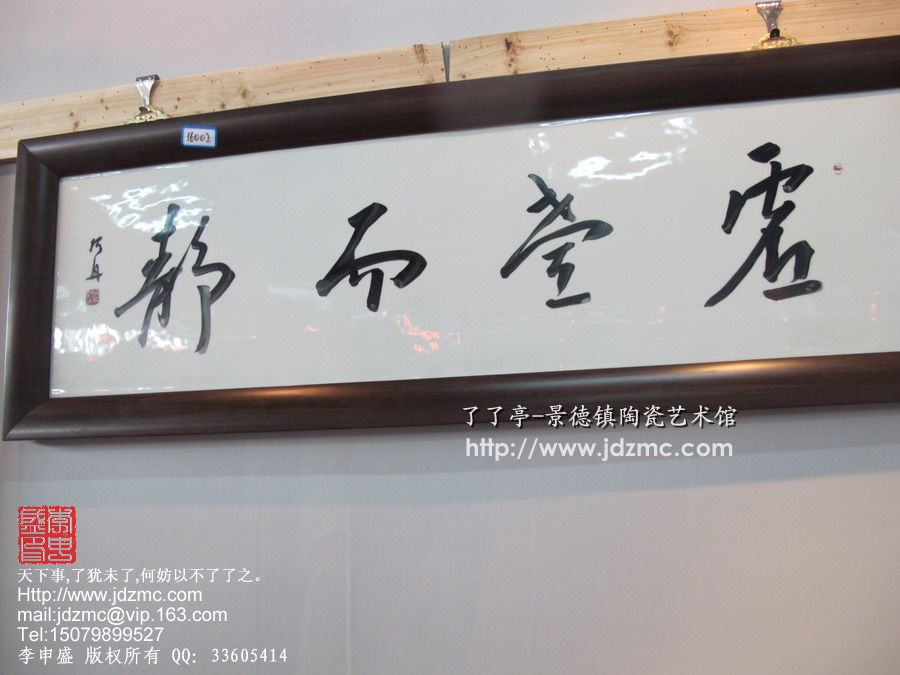 16002
虚壹而静
了了亭-景德镇陶瓷艺术馆
http://www.jdzmc.com
天下事,了犹未了,何妨以不了了之。
Http://www.jdzmc.com
mail:jdzmc@vip.163.com
Tel:15079899527
李申盛 版权所有 QQ: 33605414